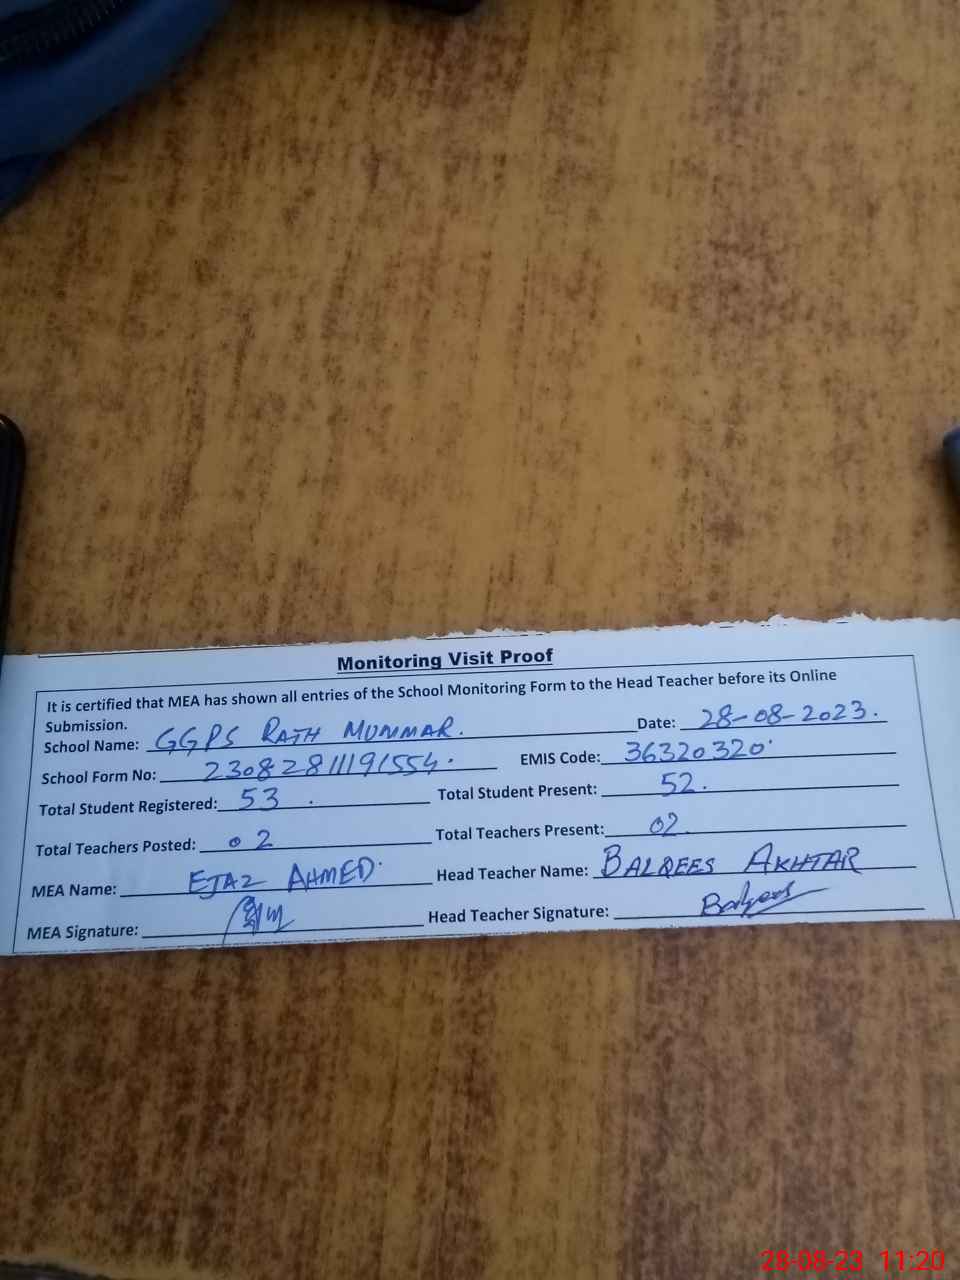 Monitoring Visit Proof
It is certified that MEA has shown all entries of the School Monitoring Form to the Head Teacher before its Online
Submission.
School Name: GGPS RATH MUNMAR. Date: 28-08-2023.
School Form No: 23082811191554. EMIS Code: 36320320
Total Student Registered: 53. Total Student Present: 52.
Total Teachers Posted: 02 Total Teachers Present: 02
MEA Name: EJAZ AHMED Head Teacher Name: BALQEES AKHTAR
MEA Signature: Head Teacher Signature: Balqees
28-08-23 11:20